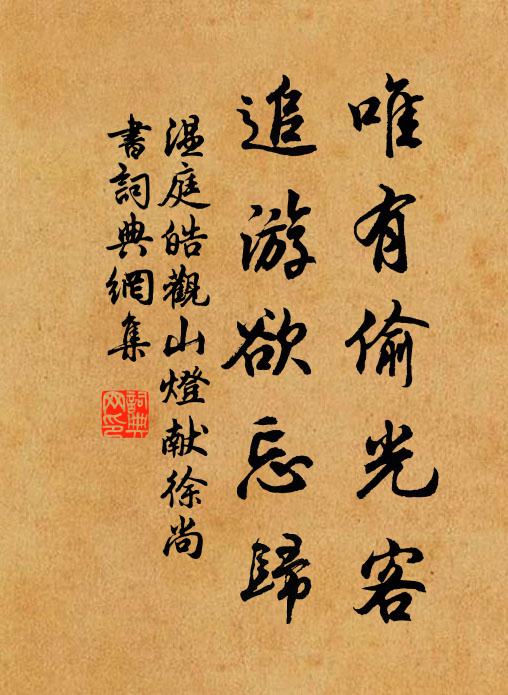 唯有偷光客
追游欲忘歸
温庭皓觀山燈献徐尚
書詞典網集
詞典
网印